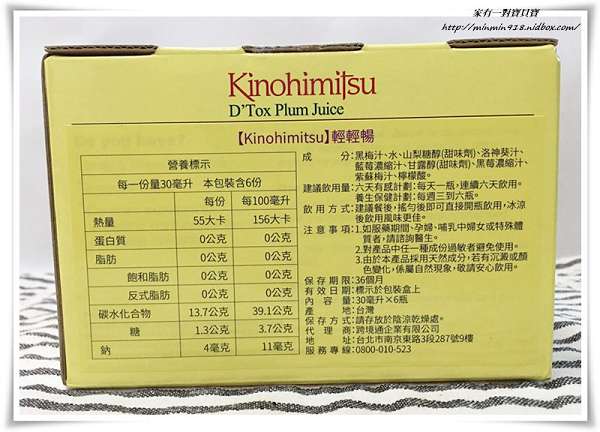 家有一對寶貝寶
http://minmin928.nidbox.com/
Kinohimitsu
D'Tox Plum Juice
【Kinohimitsu】輕輕暢
營養標示
每一份量30毫升 本包裝含6份
每份 每100毫升
熱量 55大卡 156大卡
蛋白質 0公克 0公克
脂肪 0公克 0公克
飽和脂肪 0公克 0公克
反式脂肪 0公克 0公克
碳水化合物 13.7公克 39.1公克
糖 1.3公克 3.7公克
鈉 4毫克 11毫克
成分:黑梅汁、水、山梨糖醇(甜味劑)、洛神葵汁、
藍莓濃縮汁、甘露醇(甜味劑)、黑莓濃縮汁、
紫蘇梅汁、檸檬酸。
建議飲用量:六天有感計劃:每天一瓶,連續六天飲用。
養生保健計劃:每週三到六瓶。
飲用方式:建議餐後,搖勻後即可直接開瓶飲用,冰涼
後飲用風味更佳。
注意事項:1.如服藥期間、孕婦、哺乳中婦女或特殊體
質者,請諮詢醫生。
2.對產品中任一種成份過敏者避免使用。
3.由於本產品採用天然成分,若有沉澱或顏
色變化,係屬自然現象,敬請安心飲用。
保存期限:36個月
有效日期:標示於包裝盒上
內容量:30毫升×6瓶
產地:台灣
保存方式:請存放於陰涼乾燥處。
代理商:跨境通企業有限公司
地址:台北市南京東路3段287號9樓
服務專線:0800-010-523